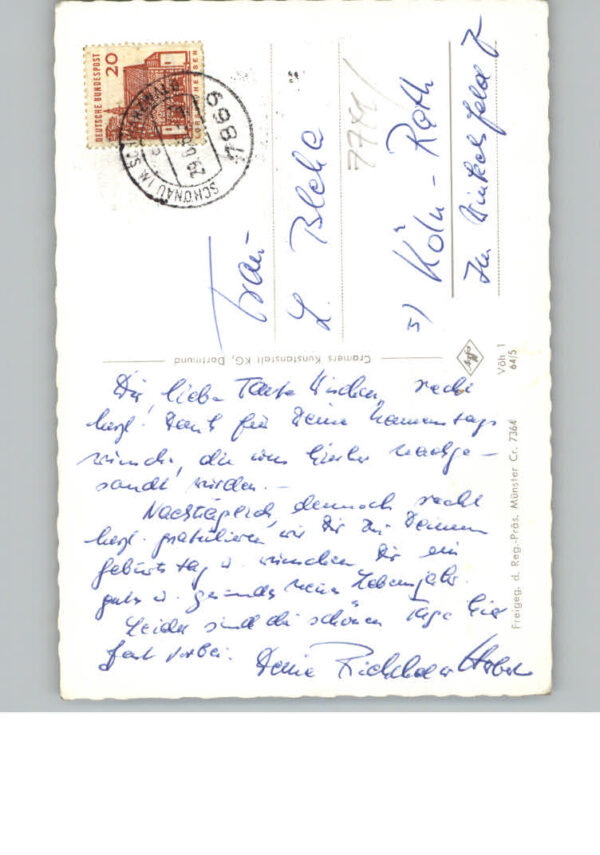 DEUTSCHE BUNDESPOST
20
HESSEN
7869
SCHÖNAU IM SCHWARZWALD
Frau
L. Blehe
5) Köln-Rath
Im
7
Cramers Kunstanstalt KG, Dortmund
Agfa
Vöh 1
64/5
Freigeg. d. Reg.-Präs. Münster Cr. 7364
Dir, liebe Tante recht
herzl. Dank für Deine Namenstags
wünsche, die uns hierher nachge-
sandt wurden. –
Nachträglich, dennoch recht
herzl. gratulieren wir Dir zu Deinem
Geburtstag u. wünschen Dir ein
gutes u. gesundes neues Lebensjahr.
Leider sind die schönen Tage hier
fast vorbei. Deine